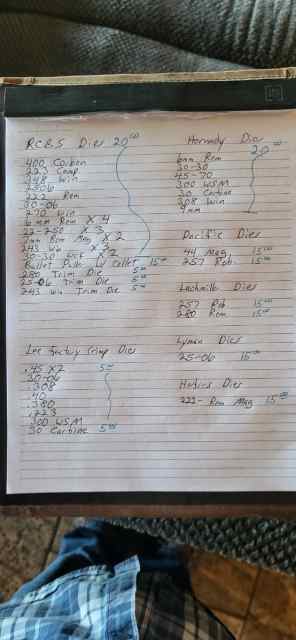 RCBS Dies 20.00
400 Corbon
223 Comp
348 Win
2506
222 Rem
30-06
270 Win
6mm Rem X 4
22-250 X 3
7mm Rem Mag X 2
243 Win X 2
30-30 Win X 2
Bullet Puller W/ Collet 15.00
280 Trim Die 5.00
25-06 Trim Die 5.00
243 Win Trim Die 5.00
Lee Factory Crimp Dies
.45 X2 5.00
30-06
.308
.40
.380
.223
.300 WSM
30 Carbine 5.00
Hornady Dies
20.00
6mm Rem
30-30
45-70
300 WSM
30 Carbine
308 Win
9mm
Pacific Dies
44 Mag 15.00
257 Rob. 15.00
Lachmiller Dies
257 Rob 15.00
280 Rem 15.00
Lyman Dies
25-06 15.00
Dies
222- Rem Mag 15.00